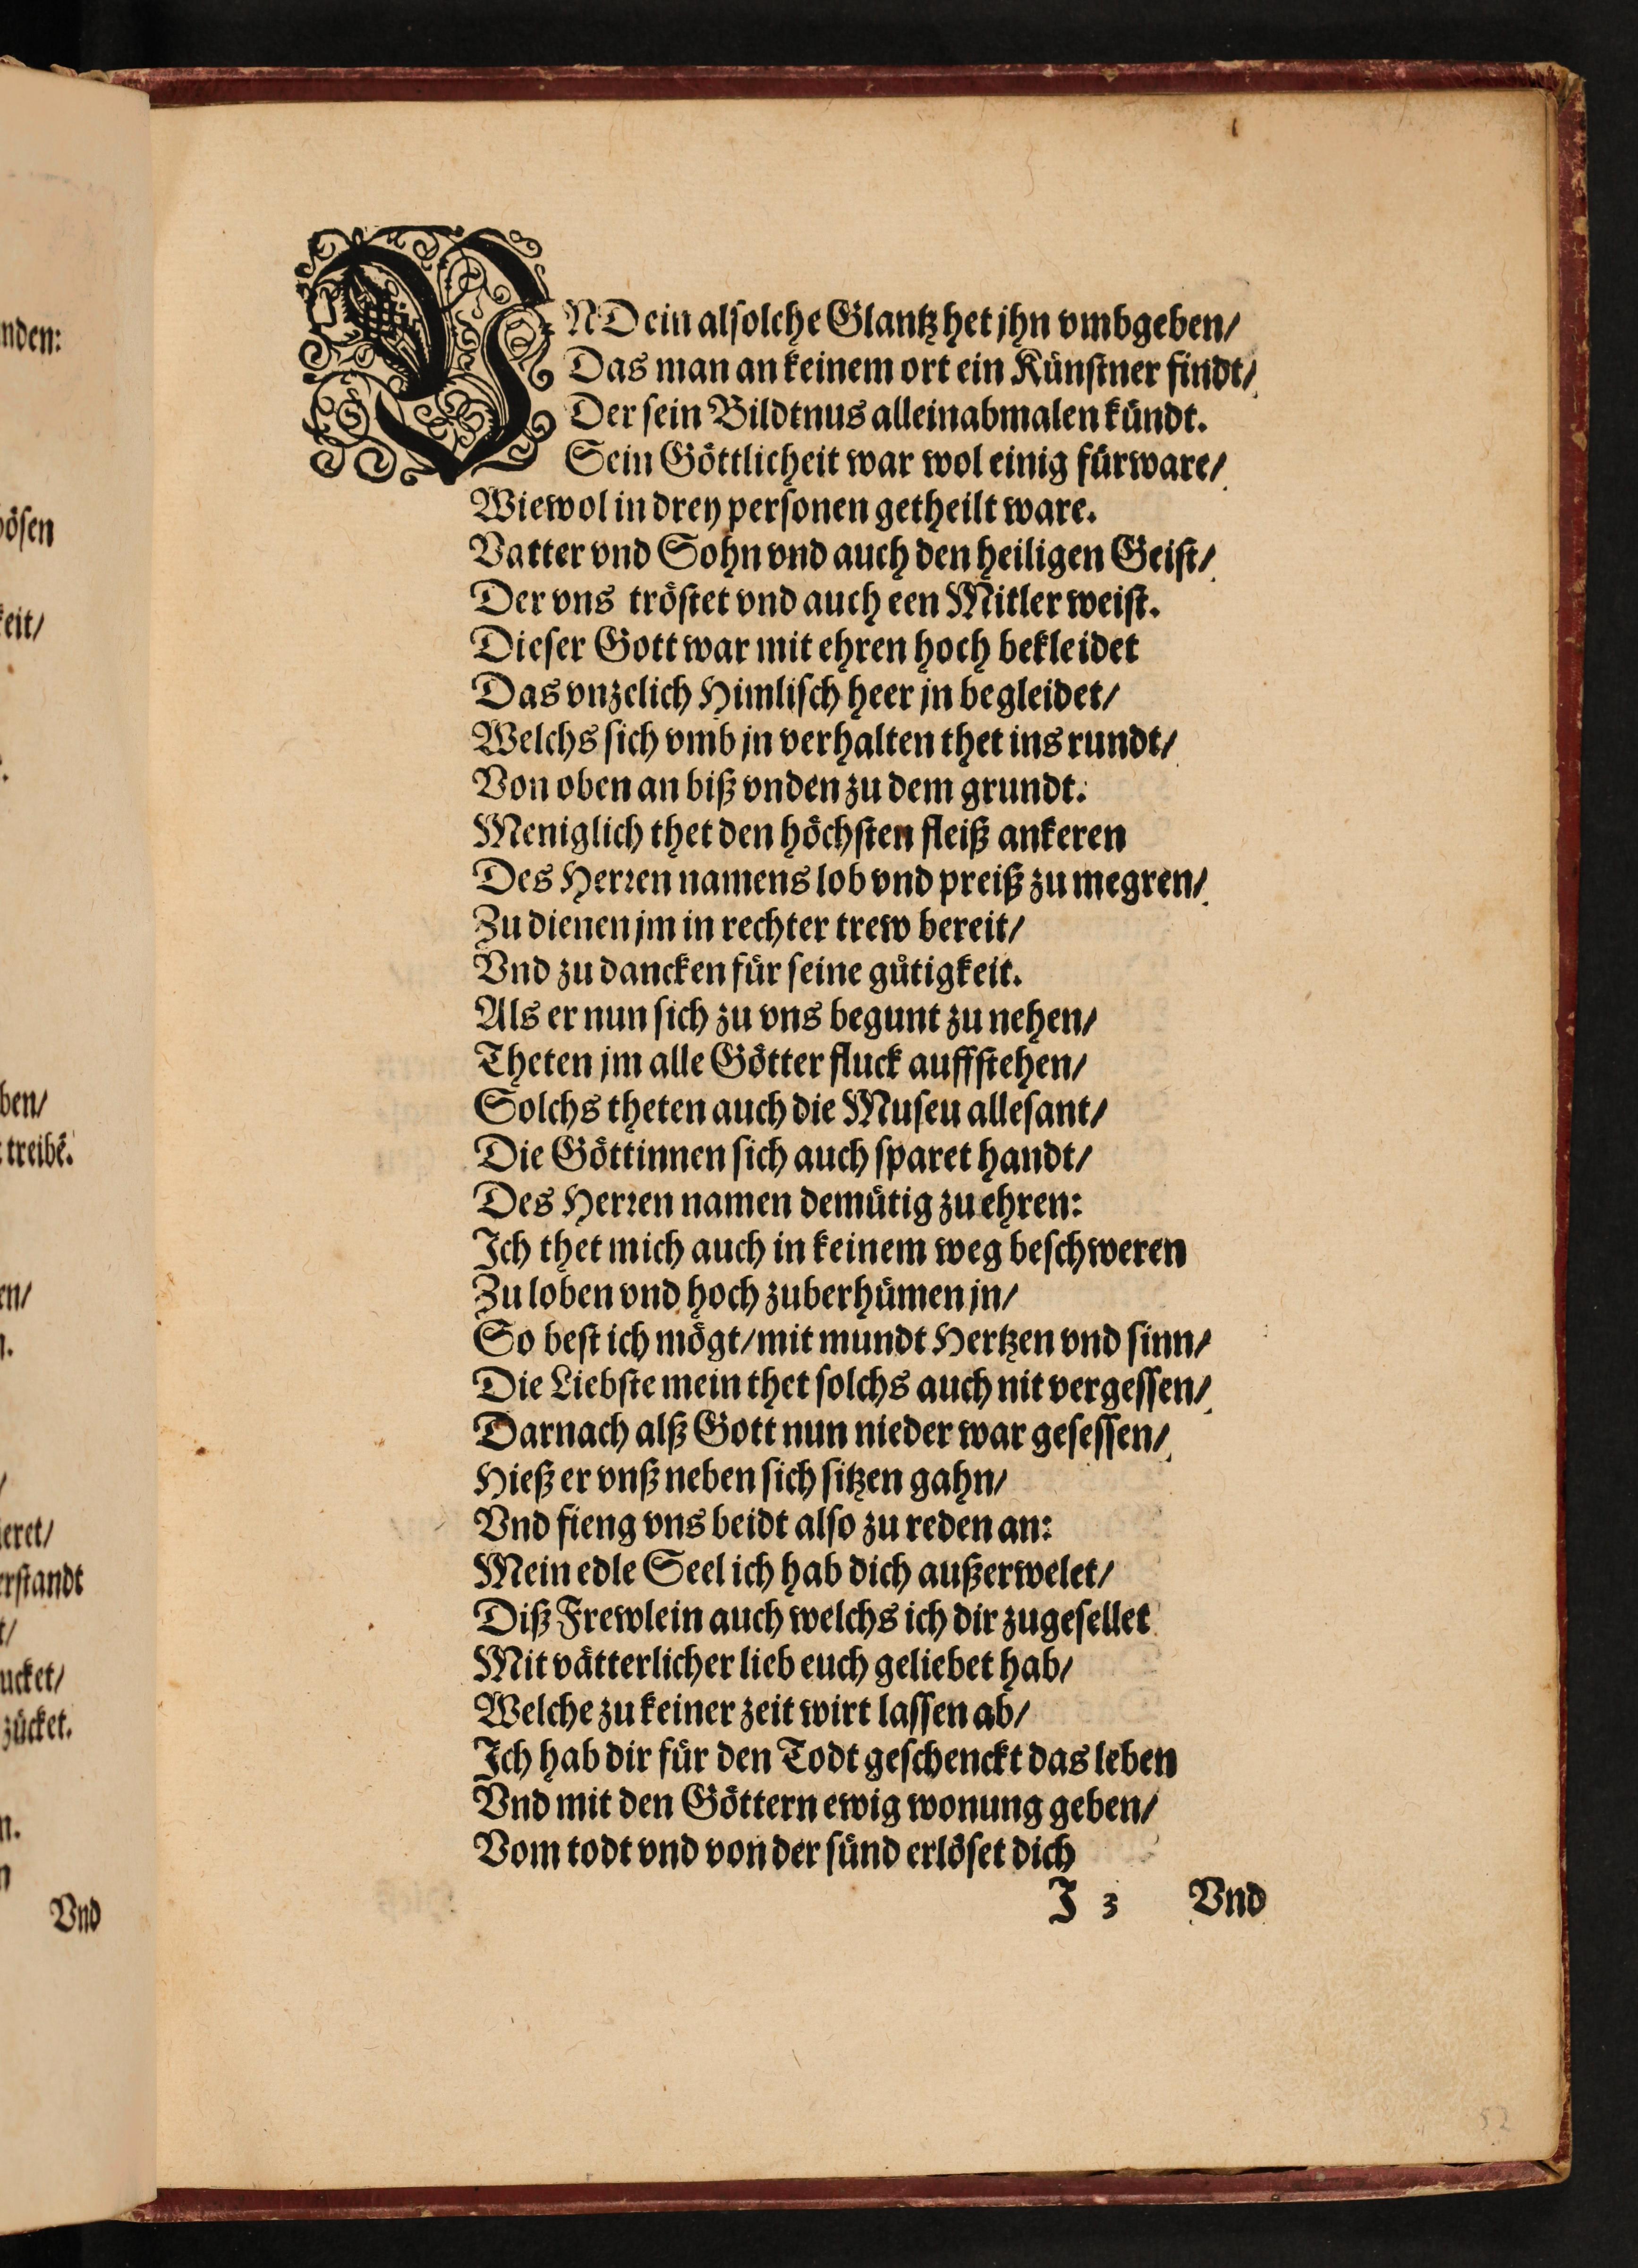 nden:
bösen
keit/
ben/
treibē.
en/
n.
ieret/
erstandt
t/
ucket/
zücket.
n.
n
Vnd
VND ein alsolche Glantz het jhn vmbgeben/
Das man an keinem ort ein Künstner findt/
Der sein Bildtnus allein abmalen kündt.
Sein Göttlicheit war wol einig fürware/
Wiewol in drey personen getheilt ware.
Vatter vnd Sohn vnd auch den heiligen Geist/
Der vns tröstet vnd auch een Mitler weist.
Dieser Gott war mit ehren hoch bekleidet
Das vnzelich Himlisch heer jn begleidet/
Welchs sich vmb jn verhalten thet ins rundt/
Von oben an biß vnden zu dem grundt.
Meniglich thet den höchsten fleiß ankeren
Des Herren namens lob vnd preiß zu megren/
Zu dienen jm in rechter trew bereit/
Vnd zu dancken für seine gütigkeit.
Als er nun sich zu vns begunt zu nehen/
Theten jm alle Götter fluck auffstehen/
Solchs theten auch die Museu allesant/
Die Göttinnen sich auch sparet handt/
Des Herren namen demütig zu ehren:
Ich thet mich auch in keinem weg beschweren
Zu loben vnd hoch zuberhümen jn/
So best ich mögt/ mit mundt Hertzen vnd sinn/
Die Liebste mein thet solchs auch nit vergessen/
Darnach alß Gott nun nieder war gesessen/
Hieß er vnß neben sich sitzen gahn/
Vnd fieng vns beidt also zu reden an:
Mein edle Seel ich hab dich außerwelet/
Diß Frewlein auch welchs ich dir zugesellet
Mit vätterlicher lieb euch geliebet hab/
Welche zu keiner zeit wirt lassen ab/
Ich hab dir für den Todt geschenckt das leben
Vnd mit den Göttern ewig wonung geben/
Vom todt vnd von der sünd erlöset dich
I 3 Vnd
52